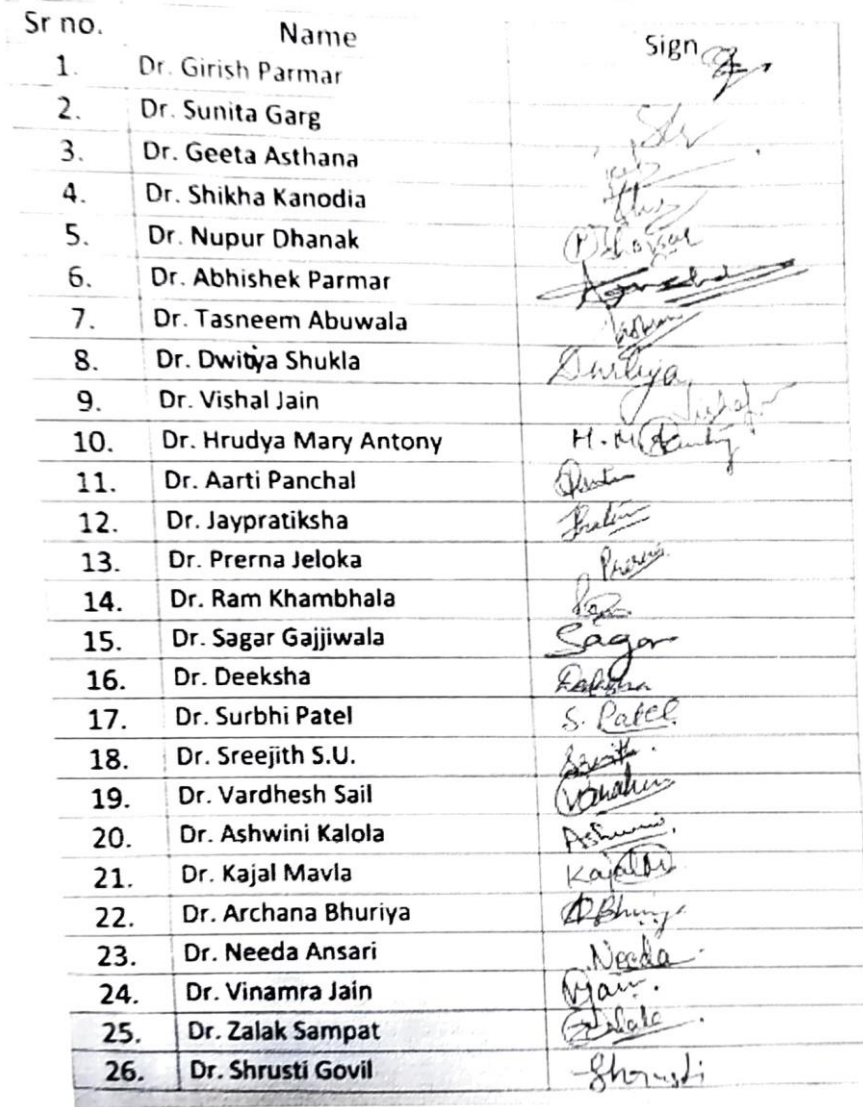 Sr no. Name Sign
1. Dr. Girish Parmar
2. Dr. Sunita Garg
3. Dr. Geeta Asthana
4. Dr. Shikha Kanodia
5. Dr. Nupur Dhanak
6. Dr. Abhishek Parmar
7. Dr. Tasneem Abuwala
8. Dr. Dwitiya Shukla
9. Dr. Vishal Jain
10. Dr. Hrudya Mary Antony H.M.
11. Dr. Aarti Panchal
12. Dr. Jaypratiksha
13. Dr. Prerna Jeloka Prerna
14. Dr. Ram Khambhala
15. Dr. Sagar Gajjiwala Sagar
16. Dr. Deeksha Deeksha
17. Dr. Surbhi Patel S. Patel
18. Dr. Sreejith S.U.
19. Dr. Vardhesh Sail
20. Dr. Ashwini Kalola Ashwini
21. Dr. Kajal Mavla Kajal
22. Dr. Archana Bhuriya
23. Dr. Needa Ansari Needa
24. Dr. Vinamra Jain VJain.
25. Dr. Zalak Sampat
26. Dr. Shrusti Govil Shrusti